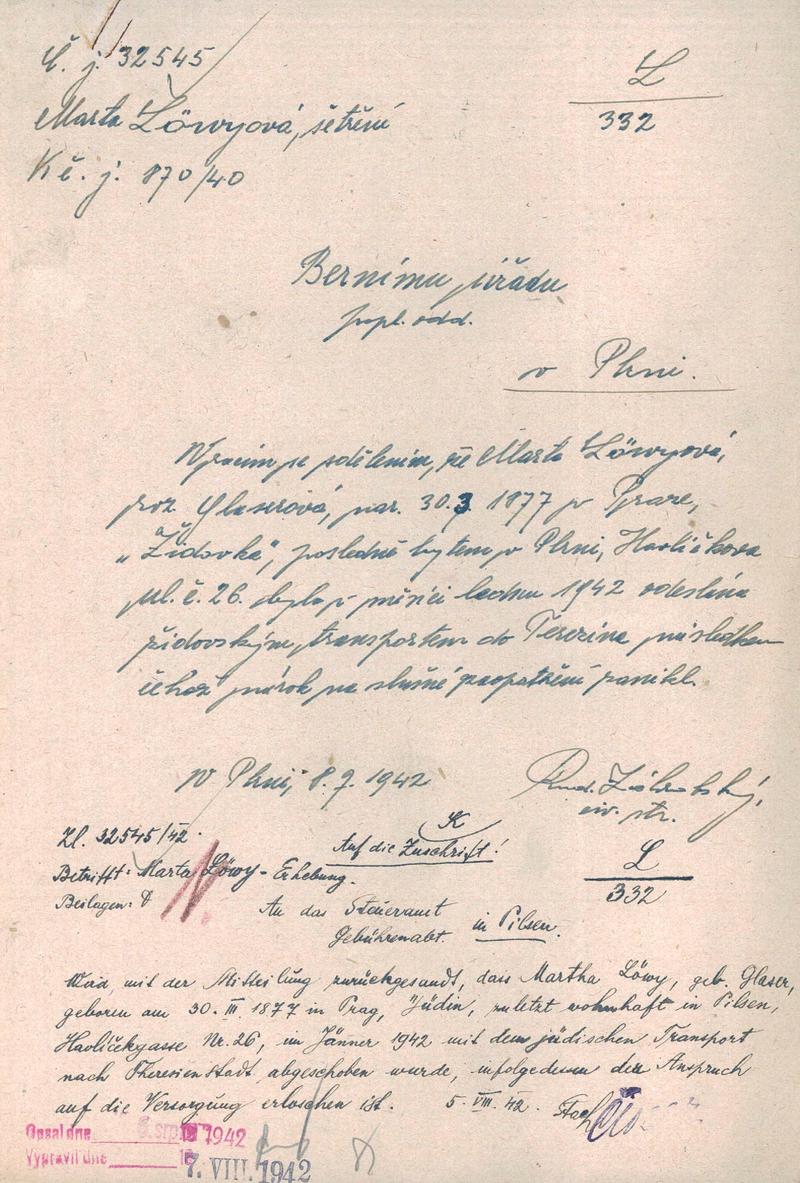 Č. j. 32545
L
332
Marta Löwyová, šetření
K č. j. 870/40
Bernímu úřadu
popl. odd.
v Plzni.
Vracím se sdělením, že Marta Löwyová,
roz. Glaserová, nar. 30.3. 1877 v Praze,
„Židovka", posledně bytem v Plzni, Havlíčkova
ul. č. 26. byla v měsíci lednu 1942 odeslána
židovským transportem do Terezína následkem
čehož nárok na slušné zaopatření zanikl.
V Plzni, 8.7. 1942
Zl. 32545/42.
K
Auf die Zuschrift!
L
332
Betrifft: Marta Löwy - Erhebung.
Beilagen:
An das Steueramt
Gebührenabt. in Pilsen.
Wird mit der Mitteilung zurückgesandt, dass Martha Löwy, geb. Glaser,
geboren am 30. III. 1877 in Prag, Jüdin, zuletzt wohnhaft in Pilsen,
Havlíčekgasse Nr. 26, im Jänner 1942 mit dem jüdischen Transport
nach Theresienstadt abgeschoben wurde, infolgedessen der Anspruch
auf die Versorgung erloschen ist. 5. VIII. 42.
Opsal dne srp 1942
Vypravil dne 7. VIII. 1942